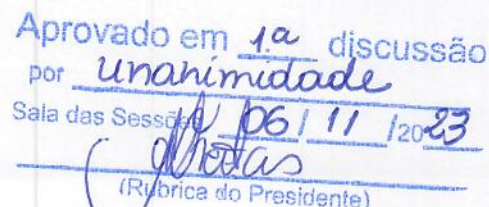 Aprovado em 1ª discussão
por unanimidade
Sala das Sessões 06 / 11 /2023
(Rubrica do Presidente)